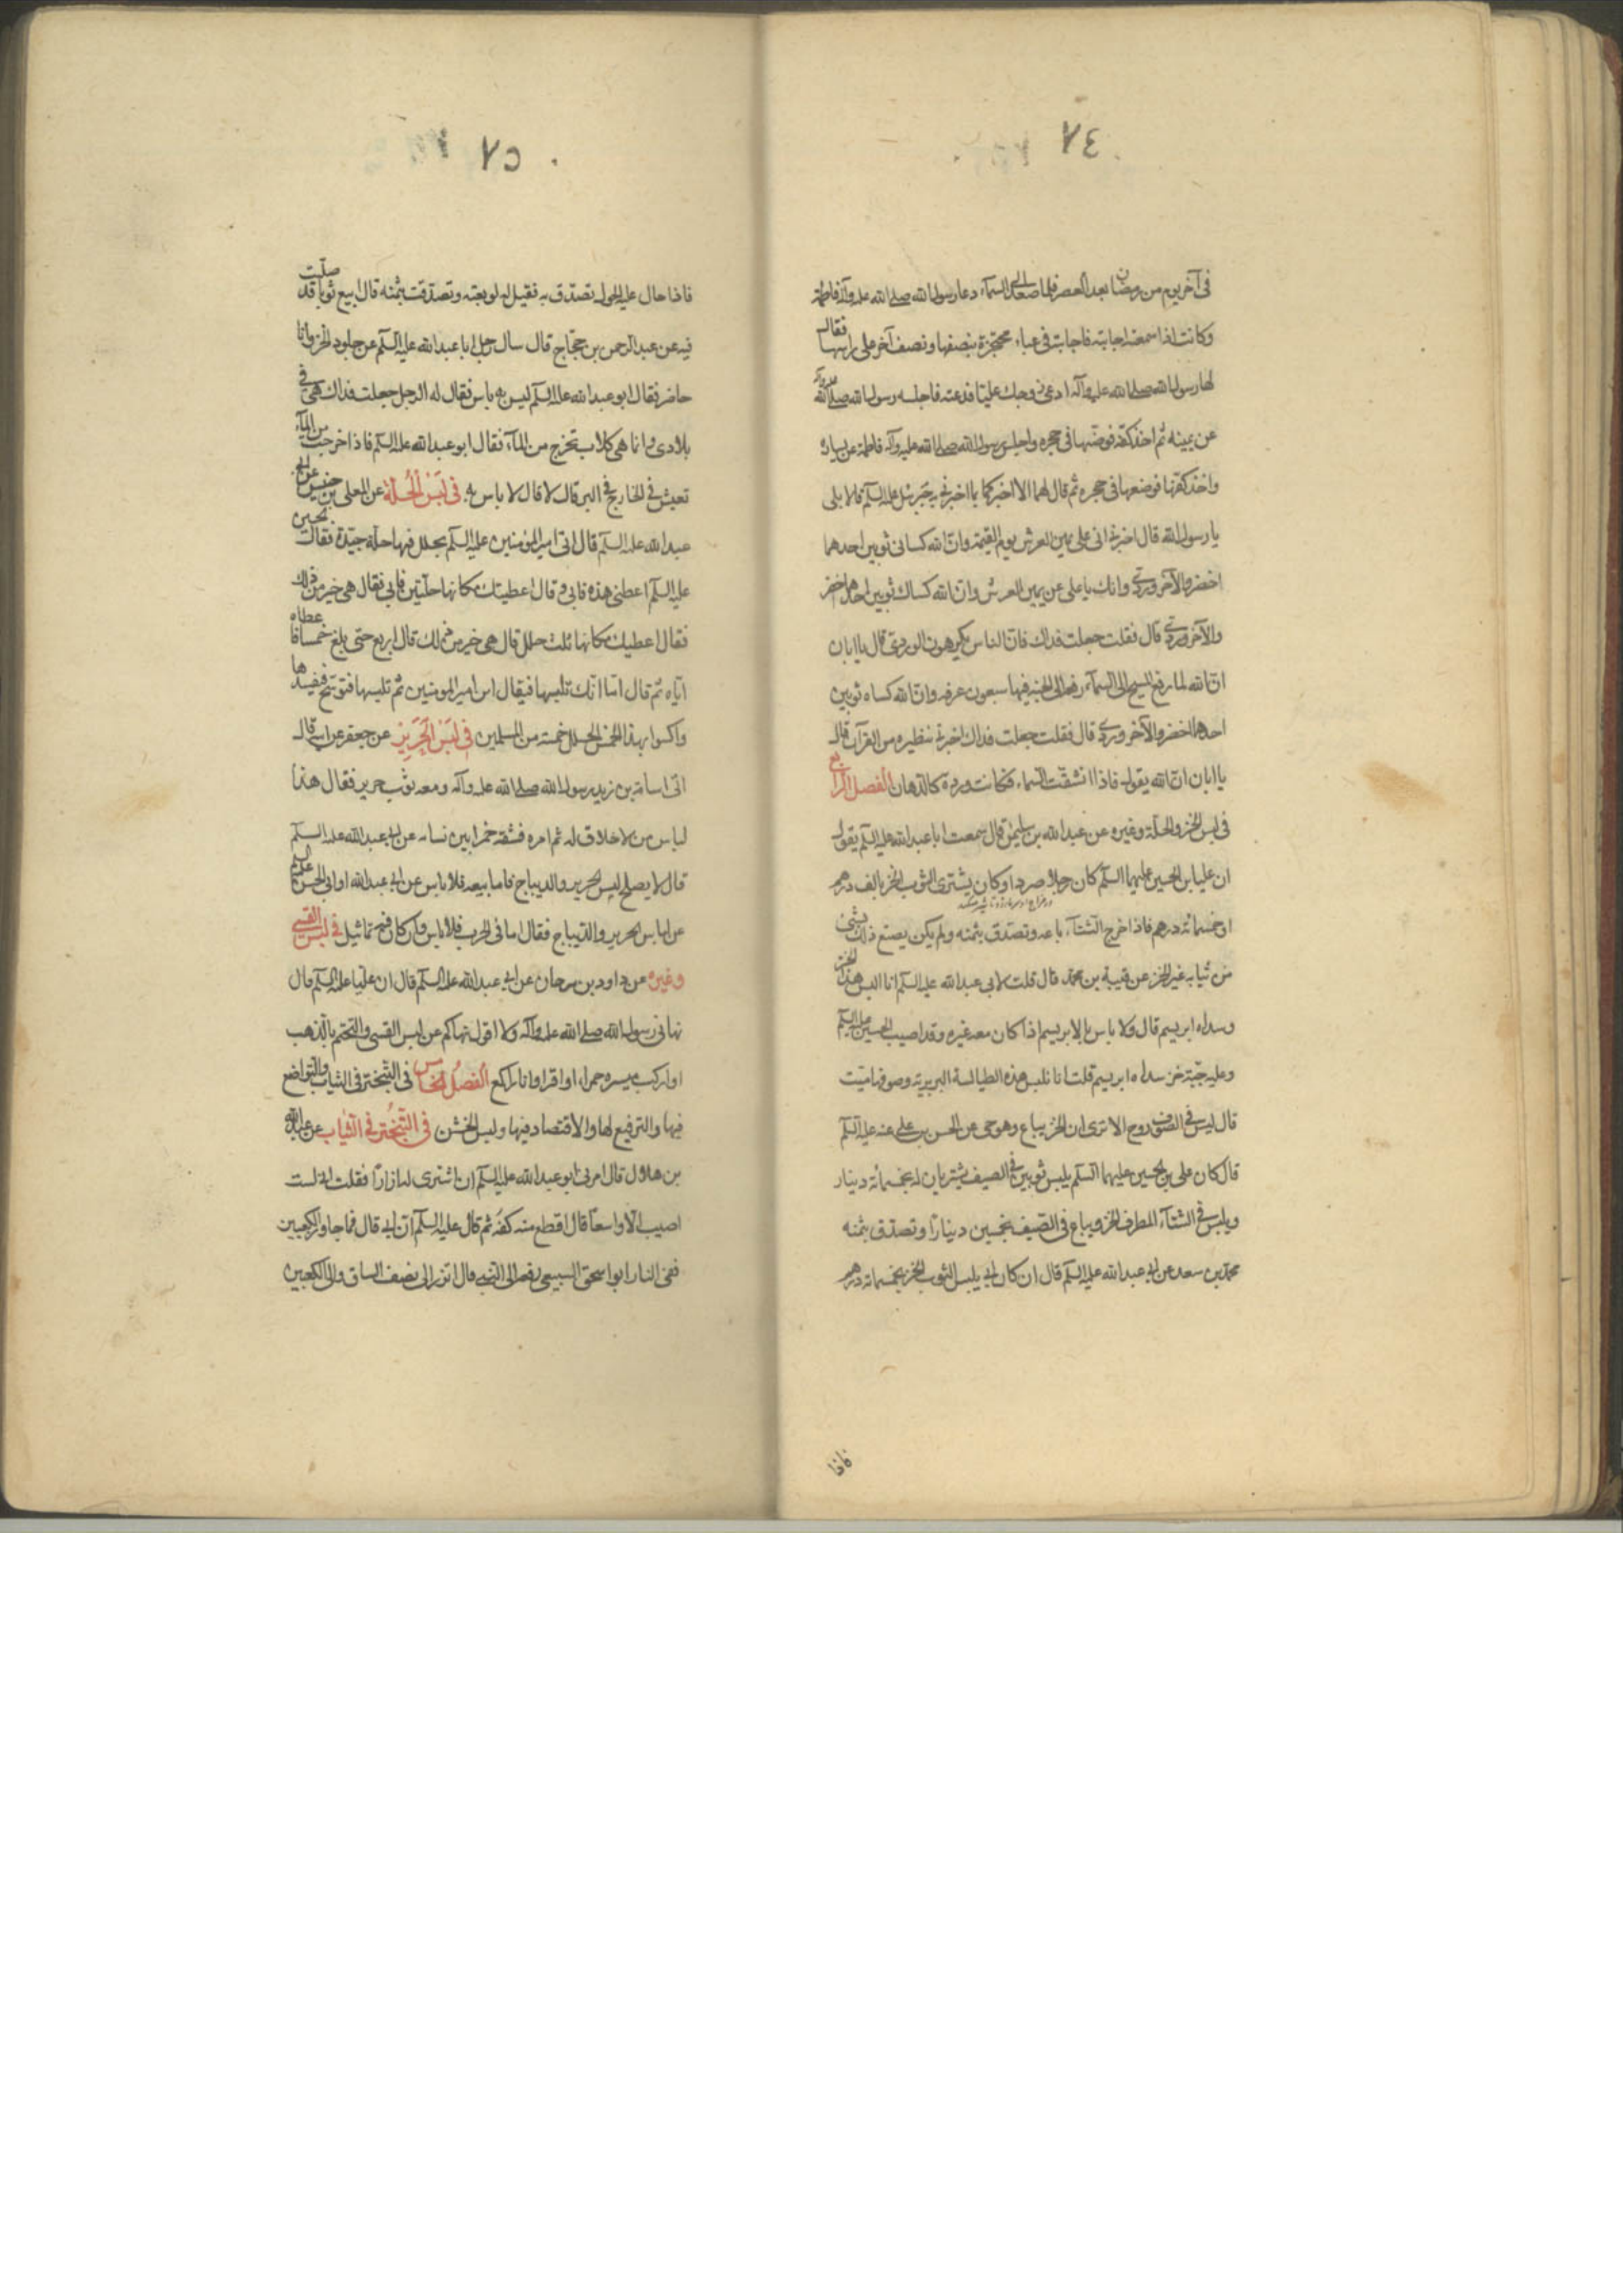 ٧٤
في آخر يوم من رمضان بعد العصر فلما صعد الى السماء دعا رسول الله صلى الله عليه وآله فاطمة
وكانت اذا سمعته اجابته فاجابت في عباء محتجزة بنصفها ونصف آخر على راسها فقال
لها رسول الله صلى الله عليه وآله ادعي زوجك عليا فدعته فاجلسه رسول الله صلى الله عليه وآله
عن يمينه ثم اخذ كفه فوضعها في حجره واجلس رسول الله صلى الله عليه وآله فاطمة عن يساره
واخذ كفها فوضعها في حجره ثم قال لهما الا اخبركما بما اخبرني به جبرئيل عليه السلم قالا بلى
يا رسول الله قال اخبرني اني على يمين العرش يوم القيمة وان الله كساني ثوبين احدهما
اخضر والآخر وردي وانك يا علي عن يمين العرش وان الله كساك ثوبين احدهما اخضر
والآخر وردي قال فقلت جعلت فداك فان الناس يكرهون الوردي قال يا ابان
ان الله لما رفع المسيح الى السماء رفعه الى الجنة فيها سبعون غرفة وان الله كساه ثوبين
احدهما اخضر والآخر وردي قال فقلت جعلت فداك اخبرني نظيره من القرآن قال
يا ابان ان الله يقول فاذا انشقت السماء فكانت وردة كالدهان الفصل الرابع
في لبس الخز والحلة وغيره عن عبد الله بن سليمن قال سمعت ابا عبد الله عليه السلم يقول
ان علي بن الحسين عليهما السلم كان رجلا صردا وكان يشتري الثوب الخز بالف درهم
او خمسمائة درهم فاذا خرج الشتاء باعه وتصدق بثمنه ولم يكن يصنع ذلك بشي
من ثيابه غير الخز عن قتيبة بن محمد قال قلت لابي عبد الله عليه السلم انا نلبس هذا الخز
وسداه ابريسم قال ولا باس بالابريسم اذا كان معه غيره وقد اصيب الحسين عليه السلم
وعليه جبة خز سداه ابريسم قلت انا نلبس هذه الطيالسة البربرية وصوفها ميت
قال ليس في الصوف روح الا ترى ان الخز يباع وهو حي عن الحسن بن علي عنه عليه السلم
قال كان علي بن الحسين عليهما السلم يلبس ثوبين في الصيف يشتريان له بخمسمائة دينار
ويلبس في الشتاء المطرف الخز ويباع في الصيف بخمسين دينارا وتصدق بثمنه
محمد بن سعد عن ابي عبد الله عليه السلم قال ان كان ابي يلبس الثوب الخز بخمسمائة درهم
فاذا
٧٥
فاذا حال عليه الحول تصدق به فقيل له لو بعته وتصدقت بثمنه قال ابيع ثوبا قد صليت
فيه عن عبد الرحمن بن حجاج قال سال رجل ابا عبد الله عليه السلم عن جلود الخز وانا
حاضر فقال ابو عبد الله عليه السلم ليس به باس فقال له الرجل جعلت فداك هي في
بلادي وانما هي كلاب تخرج من الماء فقال ابو عبد الله عليه السلم فاذا خرجت من الماء
تعيش في الخارج في البر قال لا قال لا باس به في لبس الحلة عن المعلى بن خنيس عن ابي
عبد الله عليه السلم قال اتى امير المؤمنين عليه السلم بحلل فيها حلة جيدة فقال الحسين
عليه السلم اعطني هذه فابى وقال اعطيتك مكانها حلتين فابى فقال هي خير من ذلك
فقال اعطيك مكانها ثلث حلل قال هي خير من ذلك قال اربع حتى بلغ خمسا فاعطاه
اياه ثم قال اما انك تلبسها فيقال ابن امير المؤمنين ثم تلبسها فتوسخ فتفسدها
واكسوا بهذا الخمس الحلل خمسة من المسلمين في لبس الحرير عن جعفر عن ابيه قال
اتى اسامة بن زيد رسول الله صلى الله عليه وآله ومعه ثوب حرير فقال هذا
لباس من لا خلاق له ثم امره فشقه خمرا بين نسائه عن ابي عبد الله عليه السلم
قال لا يصلح لبس الحرير والديباج فاما بيعه فلا باس عن ابي عبد الله او ابي الحسن عليه السلم
عن لباس الحرير والديباج فقال اما في الحرب فلا باس وان كان فيه تماثيل في لبس القسي
وغيره عن داود بن سرحان عن ابي عبد الله عليه السلم قال ان عليا عليه السلم قال
نهاني رسول الله صلى الله عليه وآله ولا اقول نهاكم عن لبس القسي والتختم بالذهب
او اركب ميسره حمراء او اقرا وانا راكع الفصل الخامس في التبختر في الثياب والتواضع
فيها والترفيع لها والاقتصاد فيها ولبس الخشن في التبختر في الثياب عن عبد الله
بن هلال قال امرني ابو عبد الله عليه السلم ان اشتري له ازارا فقلت اني لست
اصيب الا واسعا قال اقطع منه كفه ثم قال عليه السلم ان ابي قال فما جاوز الكعبين
ففي النار ابو اسحق السبيعي رفعه الى النبي قال اتزر الى نصف الساق والى الكعبين